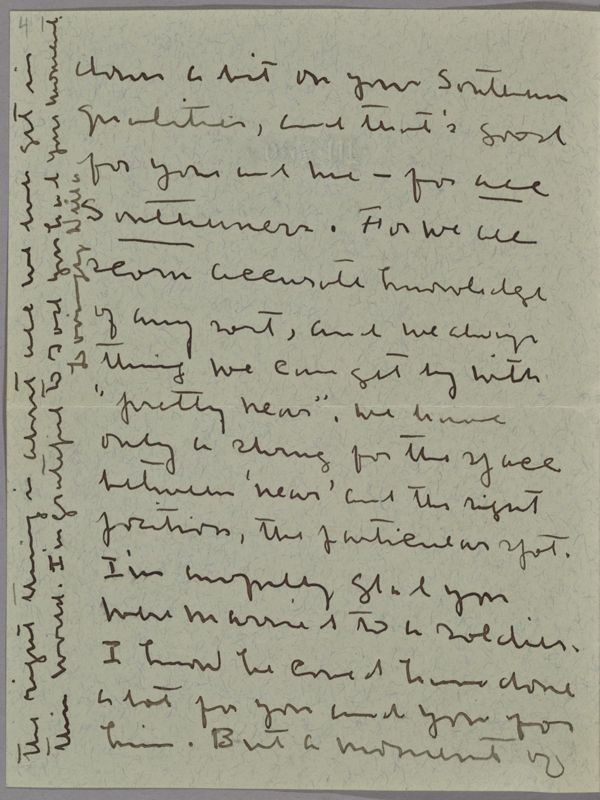 4
down a bit on your Southern
qualities, and that's good
for you and me – for all
Southerners. For we all
scorn accurate knowledge
of any sort, and we always
think we can get by with
"pretty near". We have
only a shrug for the space
between 'near' and the right
position, the particular spot.
I'm mighty glad you
were married to a soldier.
I know he could have done
a lot for you and you for
him. But a moment of
the right thing is about all we can get in
this world. I'm grateful to God you had your moment
Lovingly Willa